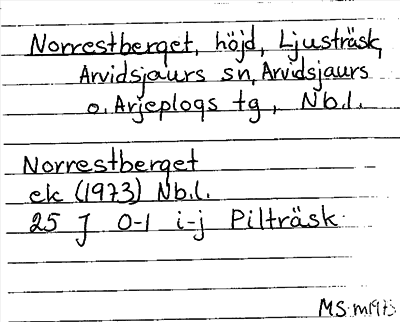 Norrestberget, höjd, Ljusträsk,
Arvidsjaurs sn, Arvidsjaurs
o. Arjeplogs tg, Nb.l.
Norrestberget
ek (1973) Nb.l.
25 J 0-1 i-j Pilträsk
MS